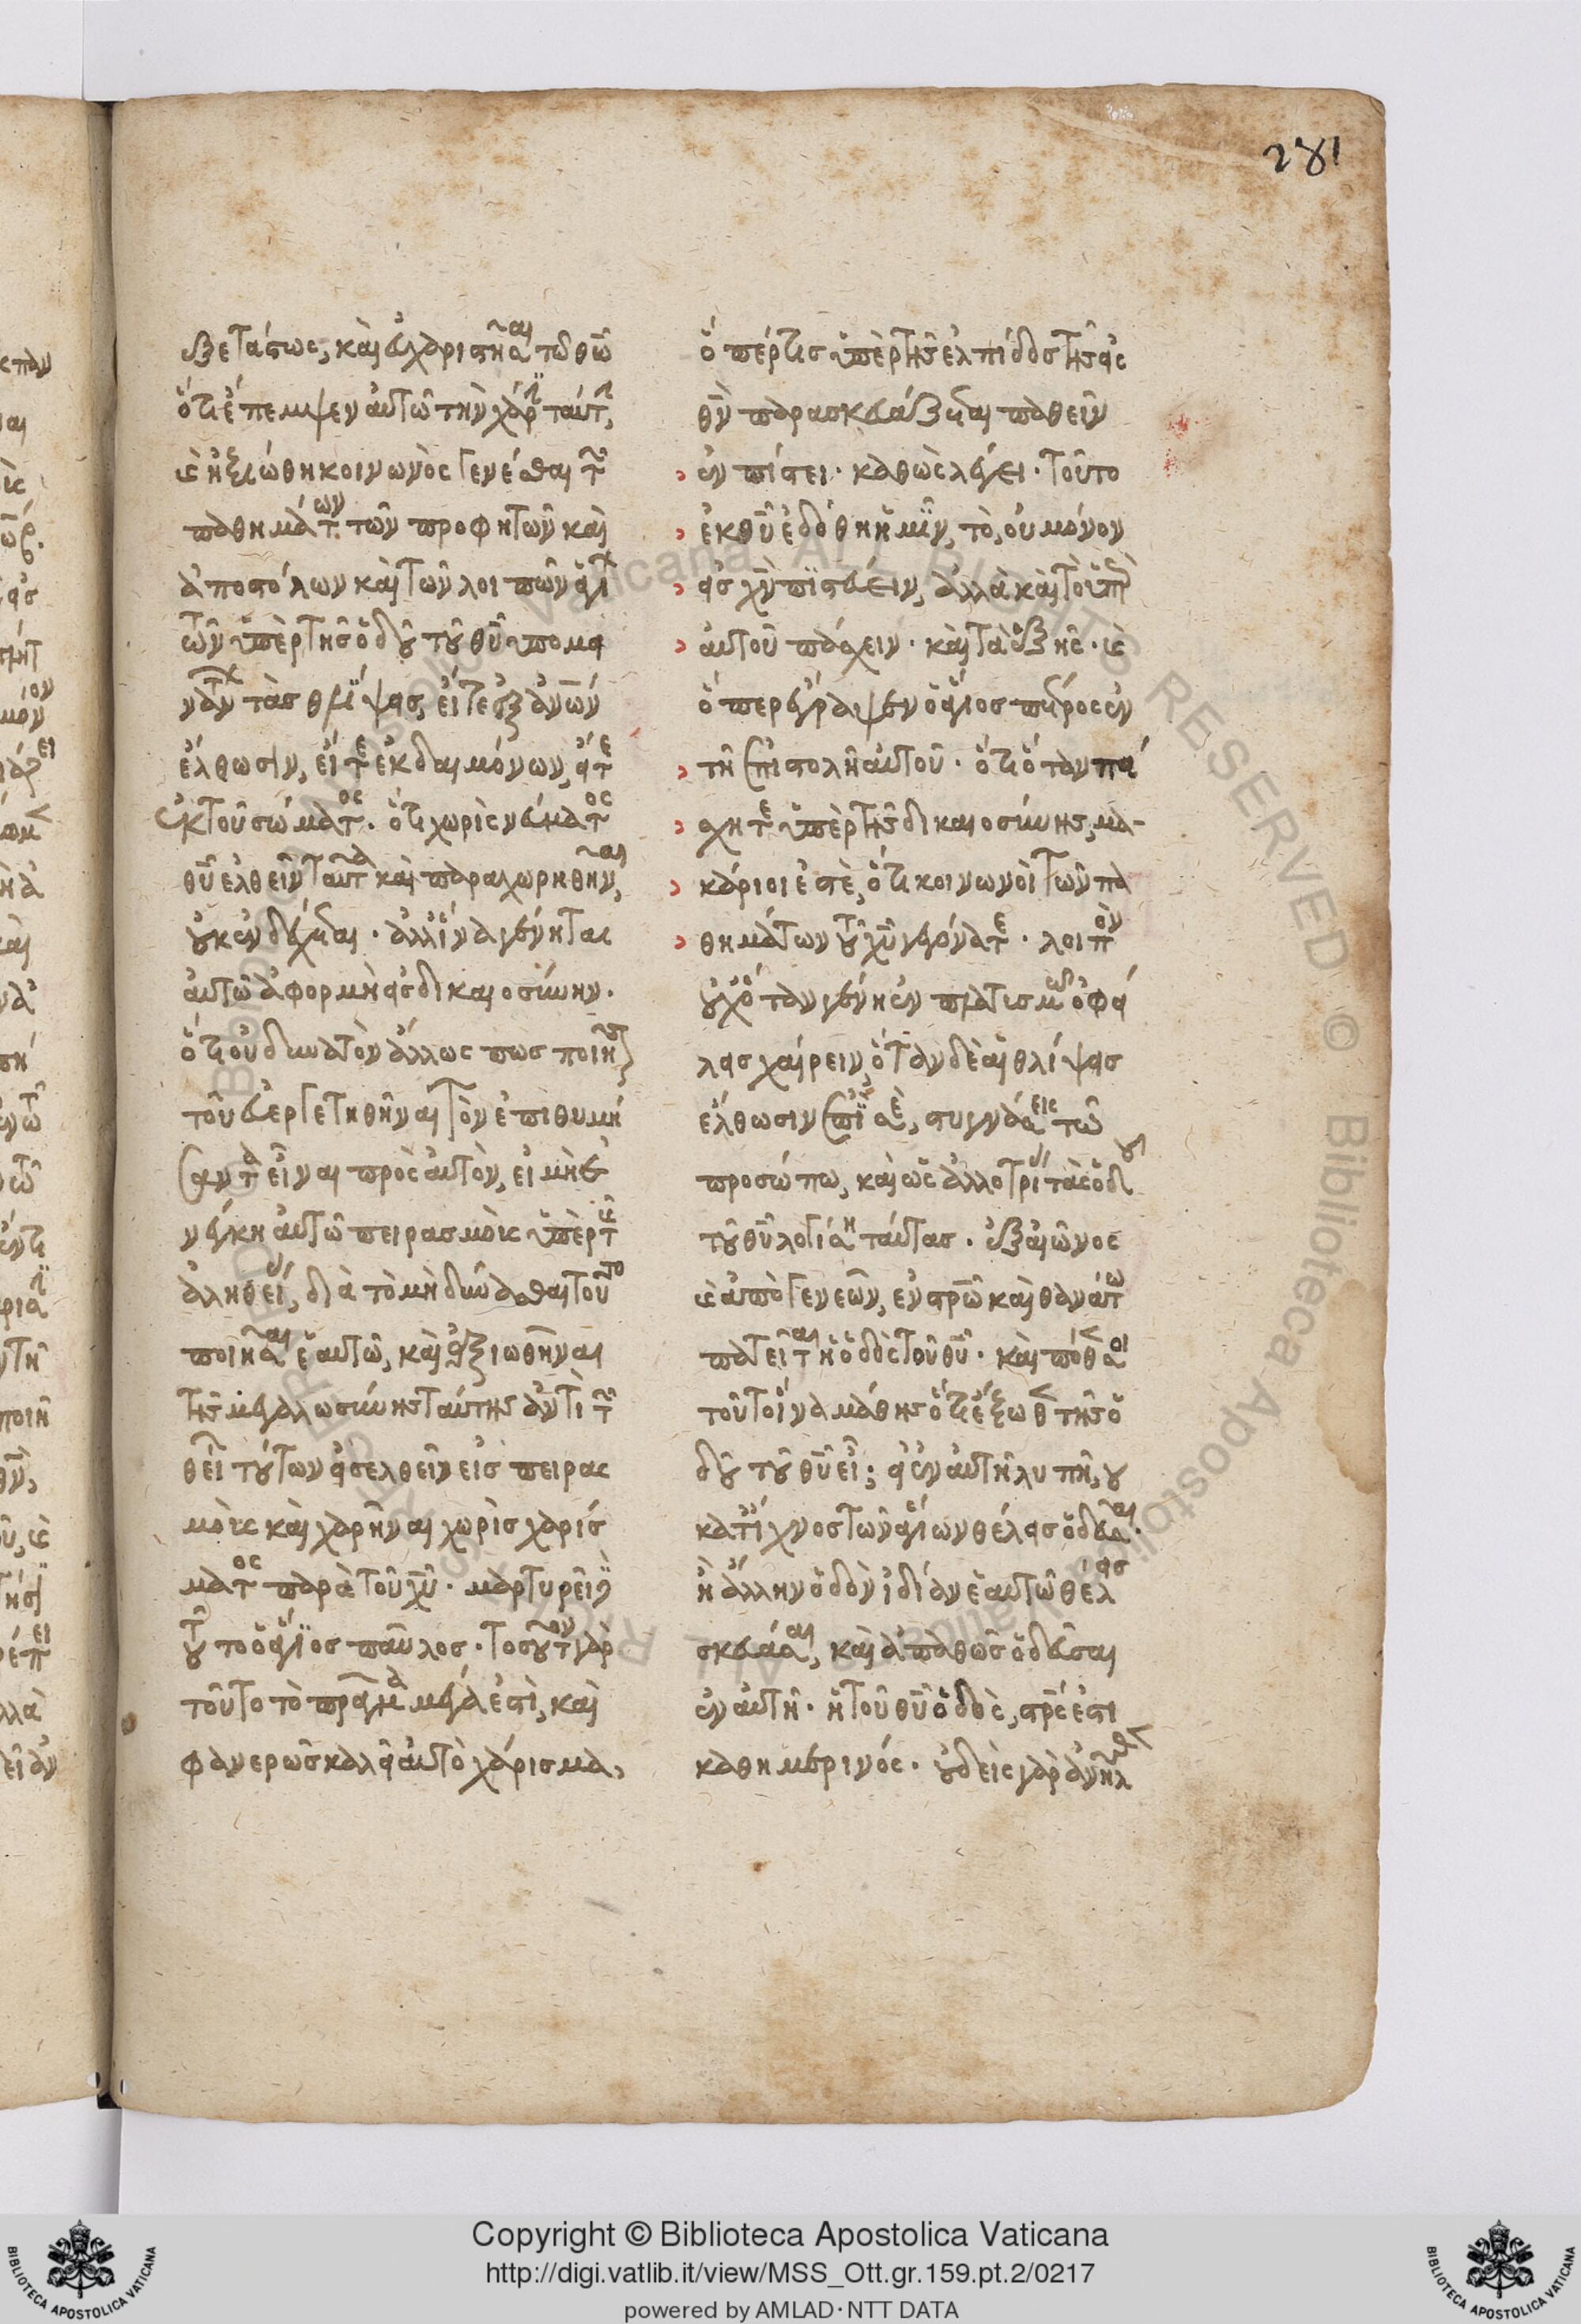 281
ἐξετάσεως, καὶ εὐχαριστῆσαι τῷ θῶ
ὅτι ἔπεμψεν αὐτῶ τὴν χάριν ταύτην,
καὶ ἠξιώθη κοινωνὸς γενέσθαι τῶν
παθημάτων τῶν προφητῶν καὶ
ἀποστόλων καὶ τῶν λοιπῶν ἁγί
ων τῶν ὑπὲρ τῆς ὁδοῦ τοῦ θῦ ὑπομει
νάντων τὰς θλίψεις, εἴτε ἐξ ἀνῶν
ἔλθωσιν, εἴτε ἐκ δαιμόνων, εἴτε
ἐκ τοῦ σώματος. ὅτι χωρὶς νεύματος
θῦ ἐλθεῖν ταῦτα καὶ παραχωρηθῆναι,
οὐκ ἐνδέχεται. ἀλλ' ἵνα γένηται
αὐτῶ ἀφορμὴ εἰς δικαιοσύνην.
ὅτι οὐ δυνατὸν ἄλλως πως ποιῆσαι
τοῦ εὐεργετηθῆναι τὸν ἐπιθυμή
σαντα εἶναι πρὸς αὐτὸν, εἰ μὴ ἐ
νέγκη αὐτῶ πειρασμοὺς ὑπὲρ τῆς
ἀληθείας, διὰ τὸ μὴ δύνασθαι τοῦτο
ποιῆσαι ἑαυτῶ, καὶ ἀξιωθῆναι
τῆς μεγαλωσύνης ταύτης ἀντὶ τῶν
θείων τούτων εἰσελθεῖν εἰς πειρασ
μοὺς καὶ χαρῆναι χωρὶς χαρίσ
ματος παρὰ τοῦ χῦ. μαρτυρεῖ δὲ
τούτο ὁ ἅγιος παῦλος. τοσοῦτον γὰρ
τοῦτο τὸ πρᾶγμα μέγα ἐστὶ, καὶ
φανερῶς καλεῖ αὐτὸ χάρισμα,
ὅπέρ τις ὑπὲρ τῆς ἐλπίδος τῆς εἰς
θν παρασκευάζεται παθεῖν
ἐν πίστει. καθὼς λέγει. τοῦτο
ἐκ θῦ ἐδόθη ἡμῖν, τὸ, οὐ μόνον
εἰς χν πιστεύειν, ἀλλὰ καὶ τὸ ὑπὲρ
αὐτοῦ πάσχειν. καὶ τὰ ἑξῆς. καὶ
ὅπερ ἔγραψεν ὁ ἅγιος πέτρος ἐν
τῆ ἐπιστολῆ αὐτοῦ. ὅτι ὅταν πά
σχητε ὑπὲρ τῆς δικαιοσύνης, μα-
κάριοι ἐστὲ, ὅτι κοινωνοὶ τῶν πα
θημάτων τοῦ χῦ γεγόνατε. λοιπὸν
οὐχ ὅταν γένη ἐν πλατισμῶ ὀφεί
λεις χαίρειν, ὅταν δὲ αἱ θλίψεις
ἔλθωσιν ἐπί σε, στυγνάσεις τῶ
προσώπω, καὶ ὡς ἀλλοτρίας τὰς ὁδοὺς
τοῦ θῦ λογίση ταύτας. ἐξ αἰῶνος
καὶ ἀπὸ γενεῶν, ἐν στρῶ καὶ θανάτω
πατεῖται ἡ ὁδὸς τοῦ θῦ. καὶ πόθεν σοι
τοῦτο; ἵνα μάθης ὅτι ἔξωθεν τῆς ὁ
δοῦ τοῦ θῦ εἶ; εἰ ἐν αὐτῆ λυπῆ, οὐ
κατ' ἴχνος τῶν ἁγίων θέλεις ὁδεῦσαι.
ἢ ἄλλην ὁδὸν ἰδίαν ἑαυτῶ θέλεις
σκευάσαι, καὶ ἀπαθῶς ὁδεῦσαι
ἐν αὐτῆ. ἡ τοῦ θῦ ὁδὸς, στρός ἐστι
καθημερινός. οὐδεὶς γὰρ ἀνῆλθεν
Copyright © Biblioteca Apostolica Vaticana
http://digi.vatlib.it/view/MSS_Ott.gr.159.pt.2/0217
powered by AMLAD·NTT DATA